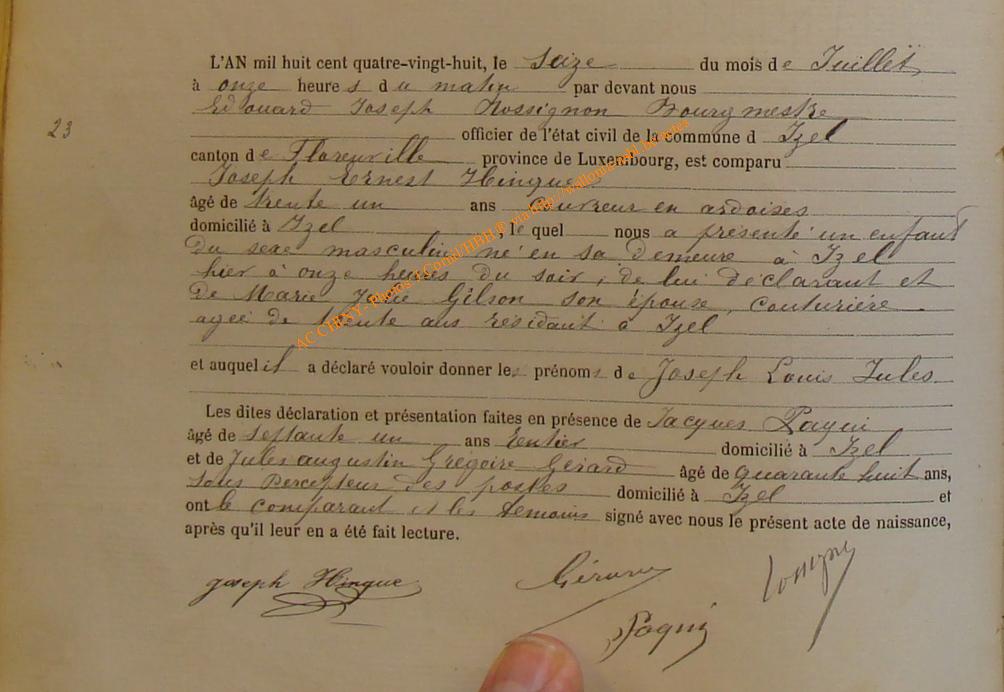 L'AN mil huit cent quatre-vingt-huit, le Seize du mois de Juillet
à onze heures du matin par devant nous
Edouard Joseph Rossignon Bourgmestre
23
officier de l'état civil de la commune d Izel
canton de Florenville province de Luxembourg, est comparu
Joseph Ernest Hingue
âgé de trente un ans Couvreur en ardoises
domicilié à Izel, lequel nous a présenté un enfant
du sexe masculin né en sa demeure à Izel
hier à onze heures du soir, de lui déclarant et
de Marie Julie Gilson son épouse, couturière
agée de trente ans résidant à Izel
et auquel il a déclaré vouloir donner les prénoms de Joseph Louis Jules
Les dites déclaration et présentation faites en présence de Jacques Pagni
âgé de septante un ans Rentier domicilié à Izel
et de Jules augustin Grégoire Gérard âgé de quarante huit ans,
Sous Percepteur des postes domicilié à Izel et
ont le comparant et les témoins signé avec nous le présent acte de naissance,
après qu'il leur en a été fait lecture.
Joseph Hingue
Gérard
Pagni